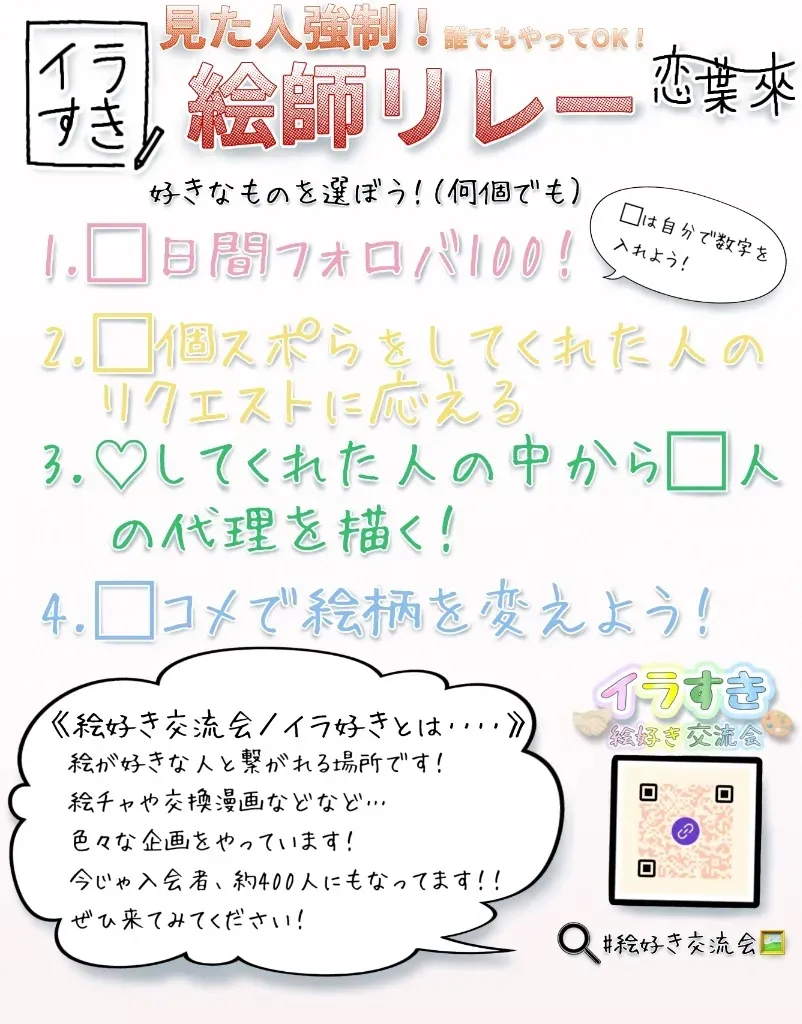 イラ
すき
見た人強制！誰でもやってOK！
絵師リレー
恋葉來
好きなものを選ぼう！(何個でも)
□は自分で数字を
入れよう！
1.□日間フォロバ100！
2.□個スポらをしてくれた人の
リクエストに応える
3.♡してくれた人の中から□人
の代理を描く！
4.□コメで絵柄を変えよう！
《絵好き交流会/イラ好きとは‥‥》
絵が好きな人と繋がれる場所です！
絵チャや交換漫画などなど…
色々な企画をやっています！
今じゃ入会者、約400人にもなってます！！
ぜひ来てみてください！
イラすき
絵好き交流会
#絵好き交流会🖼️